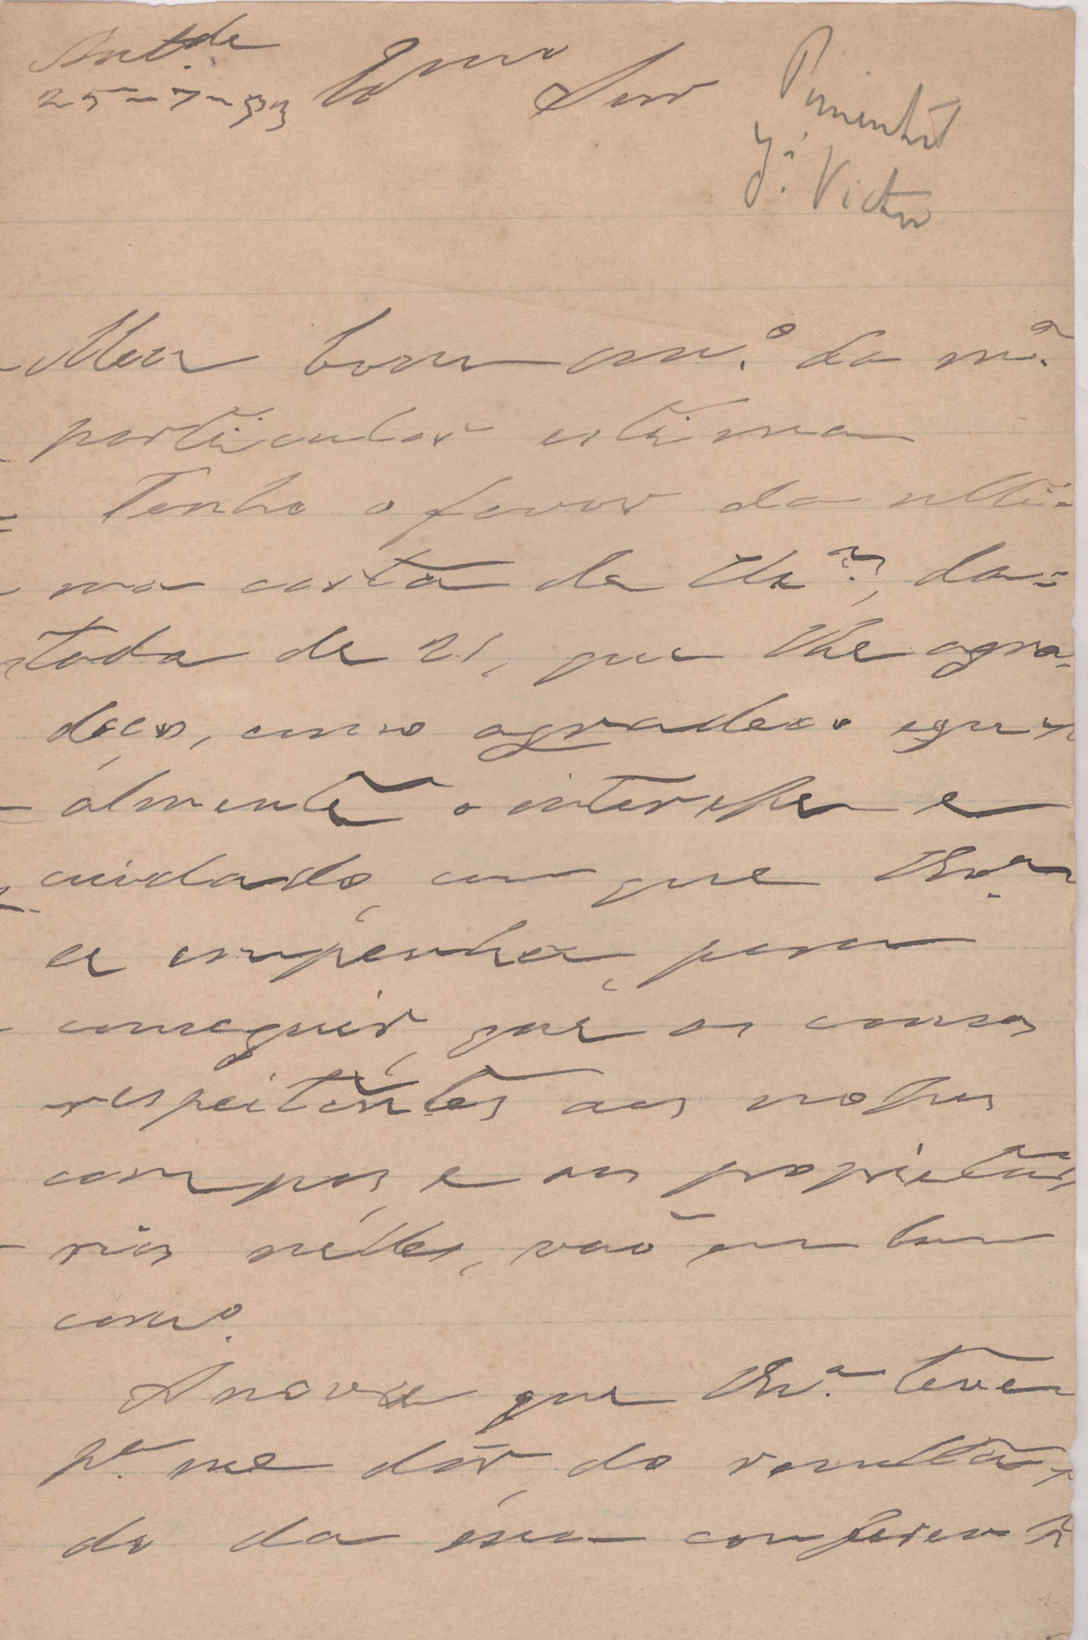 25-7-93 Exmo Snr
Pimentel
Jé. Victor
Meu bom am.º da m.ª
particular estima
Tenho o favor da ulti-
ma carta de VExª, da=
tada de 21, que lhe agra-
deço, como agradeço egu-
almente o interesse e
cuidado com que VExª
se empenha para
conseguir que as cousas
respeitantes aos nossos
campos e aos proprieta-
rios nelles, vão em bom
caminho.
A nova que VExª teve
pª. me dar, do resulta-
do da sua conferen